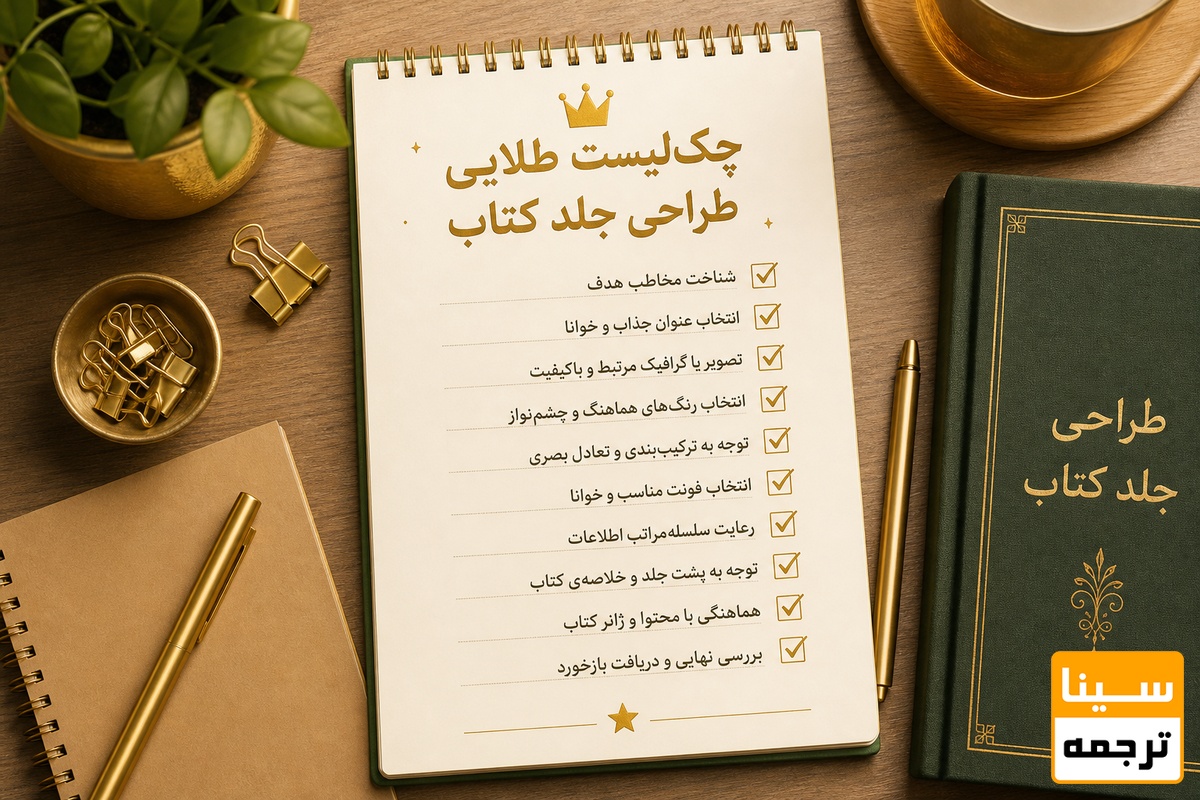 چک‌لیست طلایی
طراحی جلد کتاب
شناخت مخاطب هدف
انتخاب عنوان جذاب و خوانا
تصویر یا گرافیک مرتبط و باکیفیت
انتخاب رنگ‌های هماهنگ و چشم‌نواز
توجه به ترکیب‌بندی و تعادل بصری
انتخاب فونت مناسب و خوانا
رعایت سلسله‌مراتب اطلاعات
توجه به پشت جلد و خلاصه‌ی کتاب
هماهنگی با محتوا و ژانر کتاب
بررسی نهایی و دریافت بازخورد
طراحی
جلد کتاب
سینا
ترجمه